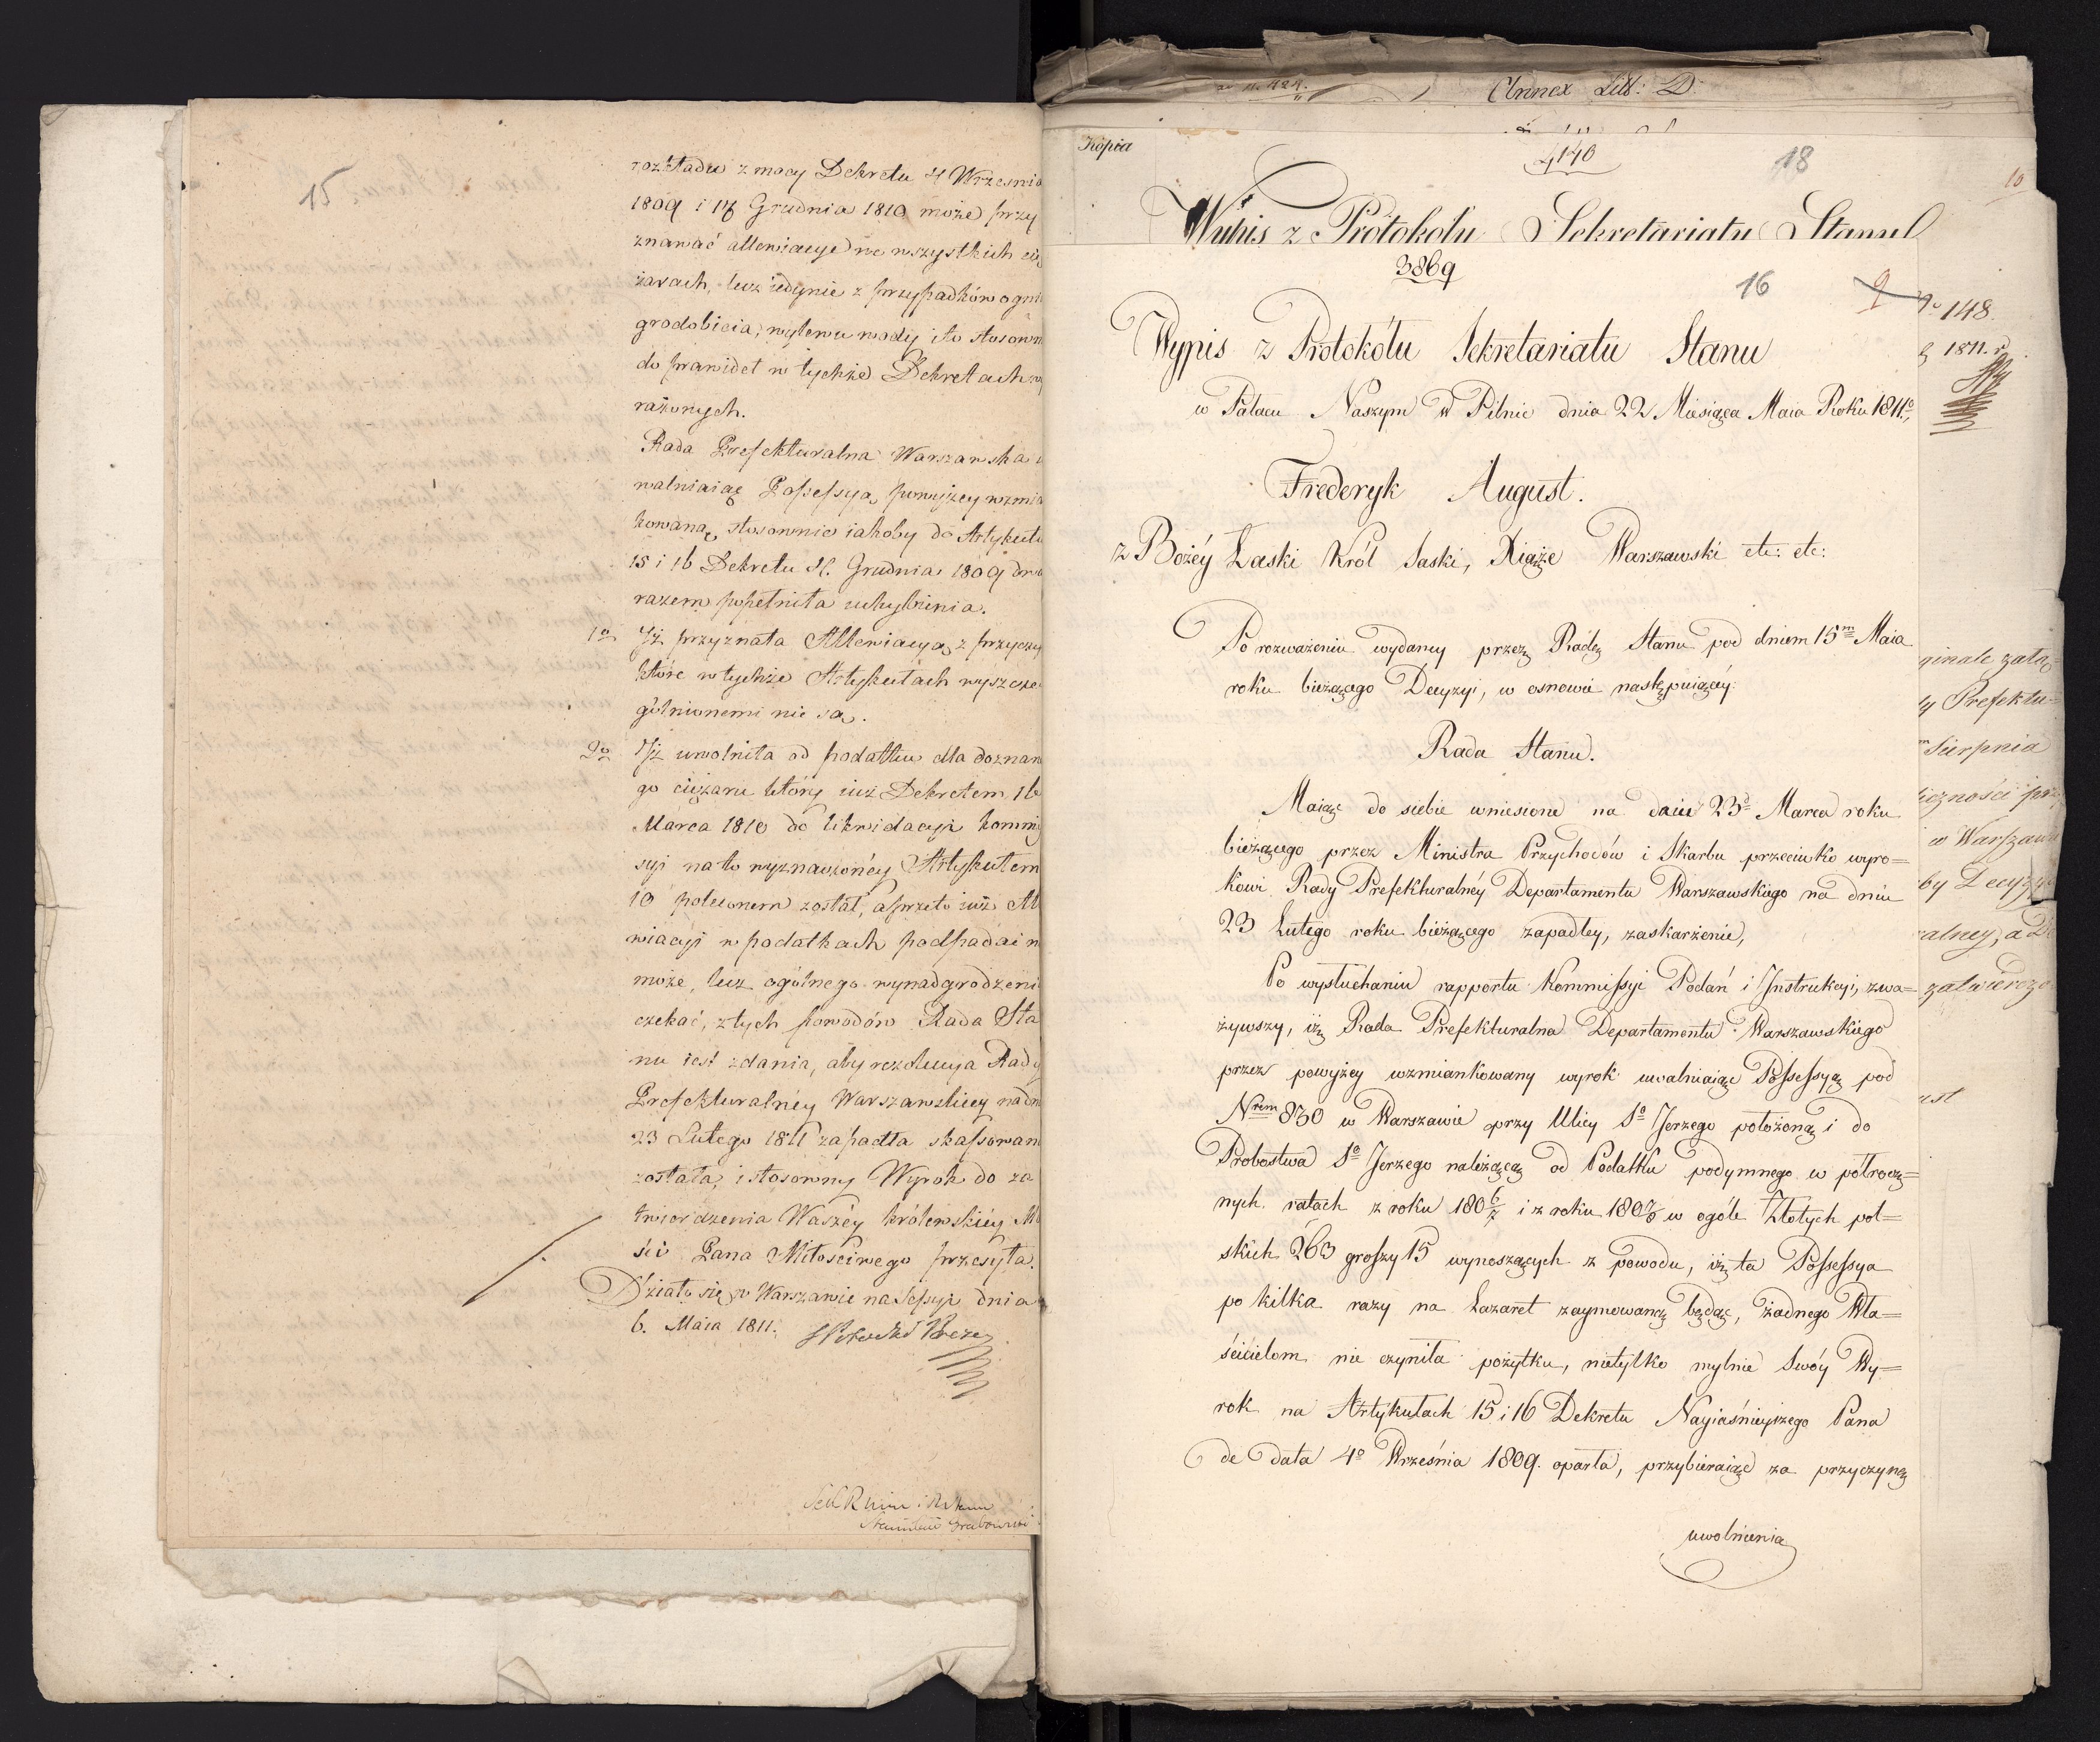 15
rozkładu z mocy Dekretu 4 Wrzesnia
1809 i 17 Grudnia 1810 może przy
znawać allewiacye we wszystkich cię
żarach, lecz iedynie z przypadków ogni
gradobicia, wylewu wody i to stosown
do prawideł w tychże Dekretach wy
rażonych.
Rada Prefekturalna Warszawska u
walniaiąc Possessyą powyżey wzmia
kowaną, stosownie iakoby do Artykułu
15 i 16 Dekretu 4. Grudnia 1809 dwa
razem popełniła uchybienia.
1o Iż przyznała Allewiacyą z przyczyn
które w tychże Artykułach wyszcze
gólnionemi nie są.
2o Iż uwolniła od podatku dla doznan
go ciężaru który iuż Dekretem 16
Marca 1810 do likwidacyi kommis
syi na to wyznaczonéy Artykułem
10 poleconem został, a przeto iuż All
wiacyi w podatkach podpadai n
może, lecz ogólnego wynadgrodzeni
czekać, z tych powodów Rada Sta
nu iest zdania, aby rezolucya Rady
Prefekturalnéy Warszawskiey na dn
23 Lutego 1811 zapadła skassowan
została, i stosowny Wyrok do za
twierdzenia Waszéy królewskiéy M
ści Pana Miłosciwego przesyła.
Działo się w Warszawie na Sessyi dnia
6. Maia 1811.
Stanisław Grabowski
Annex Litt: D:
Kopia
4140
18
10
Wypis z Protokołu Sekretariatu Stanu
3869
16
9
No 148.
1811. r.
Wypis z Protokółu Sekretariatu Stanu
w Pałacu Naszym w Pilnic dnia 22 Miesiąca Maia Roku 1811o
Frederyk August.
z Bożéy Łaski Król Saski, Xiąże Warszawski etc: etc:
Po rozważeniu wydaney przez Radę Stanu pod dniem 15m Maia
roku bieżącego Decyzyi, w osnowie następuiącéy:
Rada Stanu.
Maiąc do siebie wniesione na dniu 23d Marca roku
bieżącego przez Ministra Przychodów i Skarbu przeciwko wyro=
kowi Rady Prefekturalnéy Departamentu Warszawskiego na dniu
23 Lutego roku bieżącego zapadłey, zaskarżenie,
Po wysłuchaniu rapportu Kommissyi Podań i Instrukcyi, zwa=
żywszy, iż Rada Prefekturalna Departamentu Warszawskiego
przez powyżey wzmiankowany wyrok uwalniaiąc Possessyą pod
Nrem 830 w Warszawie przy Ulicy So Jerzego położoną i do
Probostwa So Jerzego należącą od Podatku podymnego w półrocz=
nych ratach z roku 1806/7 i z roku 1807/8 w ogóle Złotych pol=
skich 263 groszy 15 wynoszących z powodu, iż ta Possessya
po kilka razy na Lazaret zaymowaną będąc, żadnego Wła=
ścicielom nie czyniła pożytku, nietylko mylnie Swóy Wy=
rok na Artykułach 15 i 16 Dekretu Nayiaśnieyszego Pana
de data 4o Września 1809. oparła, przybieraiąc za przyczynę
uwolnienia
ginale załą=
dy Prefektu=
m Sierpnia
iczności prz
w Warszaw
by Decyzy
ralney, a D
zatwierdzo
ust